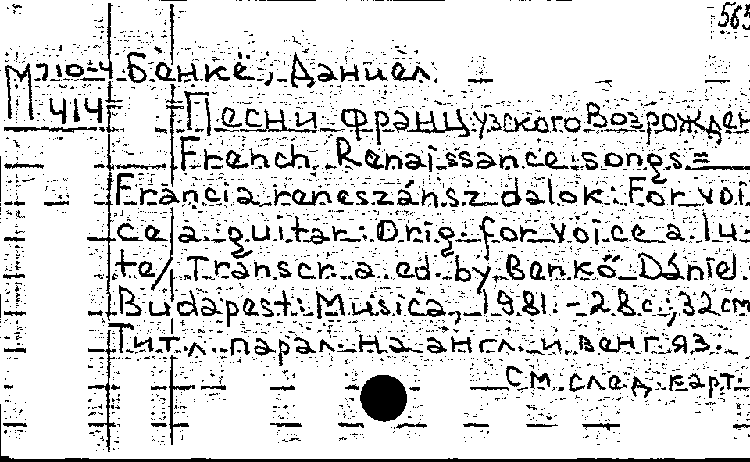 563
М710-4 Бенкё, Даниел.
М 414 Песни французского Возрожден
French Renaissance songs =
Francia reneszánsz dalok: For voi
ce a. guitar: Orig. for voice a. lu-
te/ Transcr. a. ed. by Benkő Dániel.
Budapest: Musica, 1981. - 28 с.; 32 см
Тит. л. парал. на англ. и венг. яз.
См. след. карт.